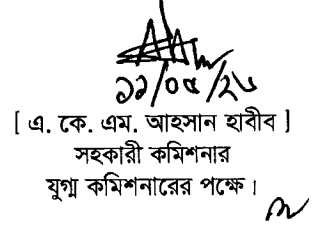 [ এ. কে. এম. আহসান হাবীব ]
সহকারী কমিশনার
যুগ্ম কমিশনারের পক্ষে।